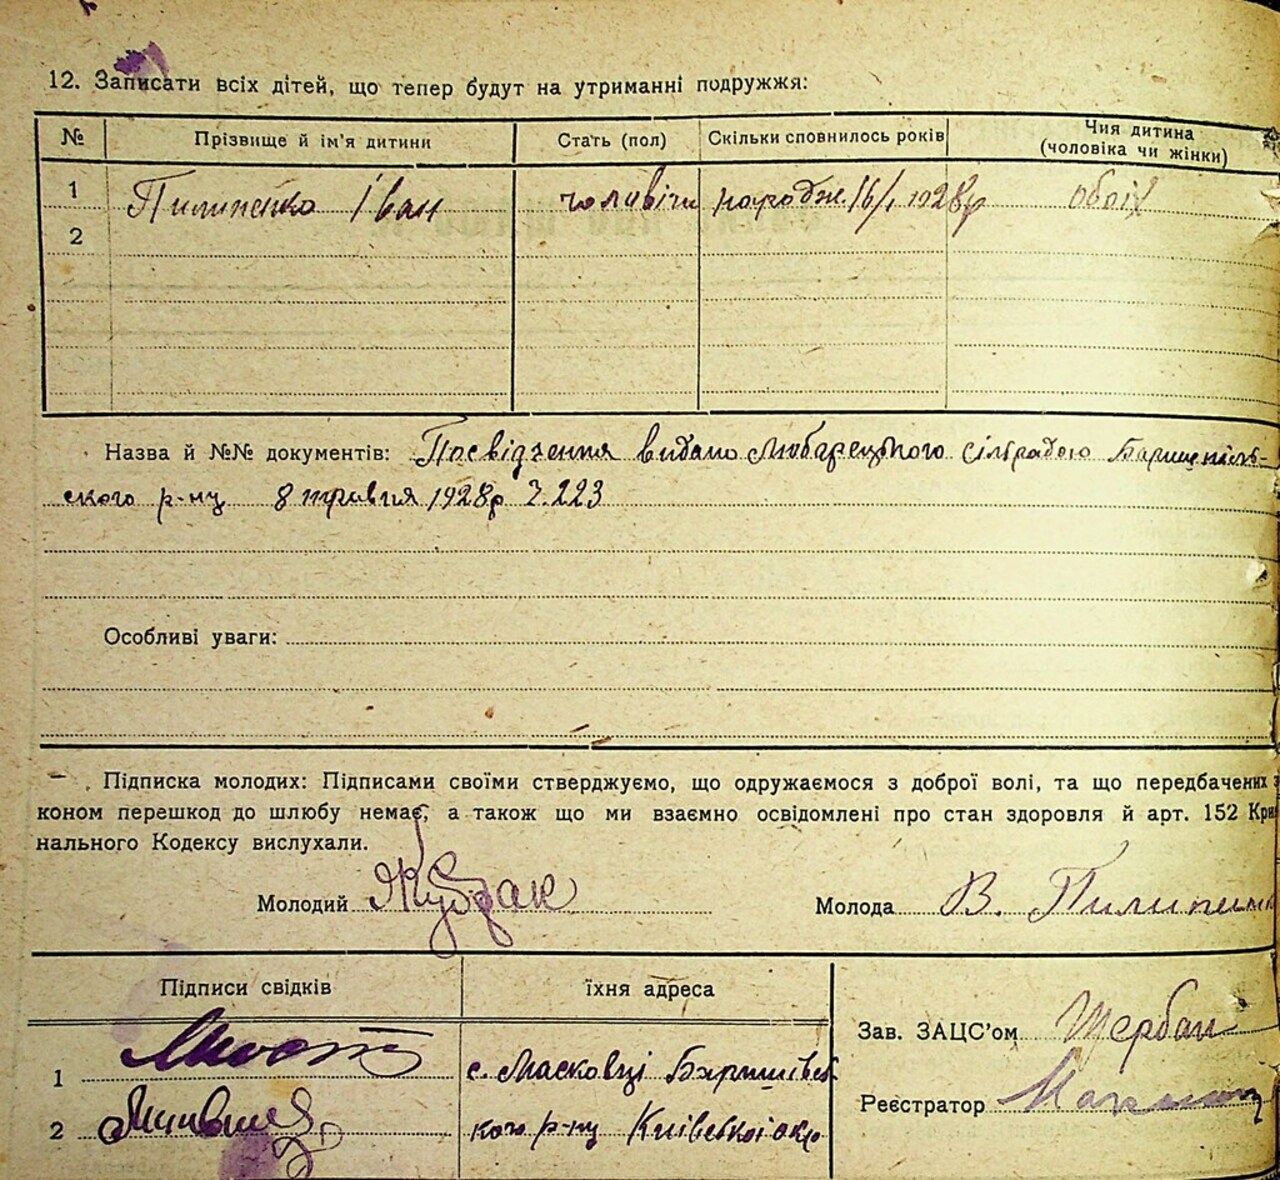 12. Записати всіх дітей, що тепер будут на утриманні подружжя:
№ Прізвище й ім'я дитини Стать (пол) Скільки сповнилось років Чия дитина (чоловіка чи жінки)
1 Пилипенко Іван чоловічи народж. 16/I 1928р обоіх
2
Назва й №№ документів: Посвідчення видано Любарецького сільрадою Баришпільь-
ского р-ну 8 травня 1928р Ч.223
Особливі уваги:
Підписка молодих: Підписами своїми стверджуємо, що одружаємося з доброї волі, та що передбачених з
коном перешкод до шлюбу немає, а також що ми взаємно освідомлені про стан здоровля й арт. 152 Кри
нального Кодексу вислухали.
Молодий Молода В. Пилипенко
Підписи свідків їхня адреса
Зав. ЗАЦС'ом Щербак
1 с. Масковці Баришівсь
Реєстратор
2 кого р-ну Киівськоі окр